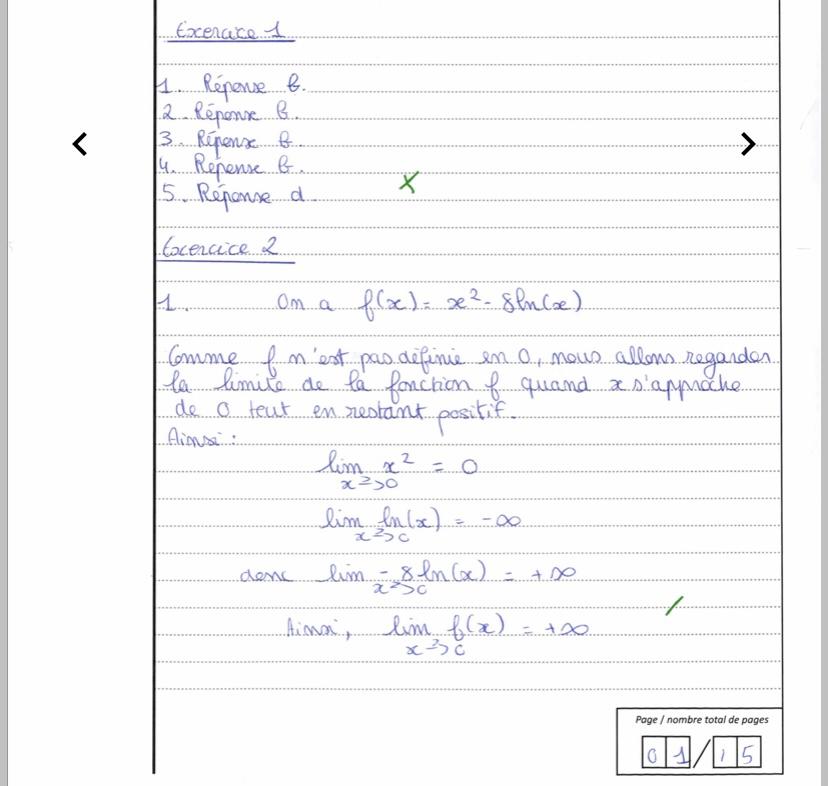 Exercice 1
1. Réponse b.
2. Réponse b.
3. Réponse b.
4. Réponse b.
5. Réponse d.
Exercice 2
1. On a f(x) = x² - 8ln(x)
Comme f n'est pas définie en 0, nous allons regarder
la limite de la fonction f quand x s'approche
de 0 tout en restant positif.
Ainsi :
lim x² = 0
x->0
lim ln(x) = -∞
x->0
donc lim - 8ln(x) = +∞
x->0
Ainsi, lim f(x) = +∞
x->0
Page / nombre total de pages
01/15